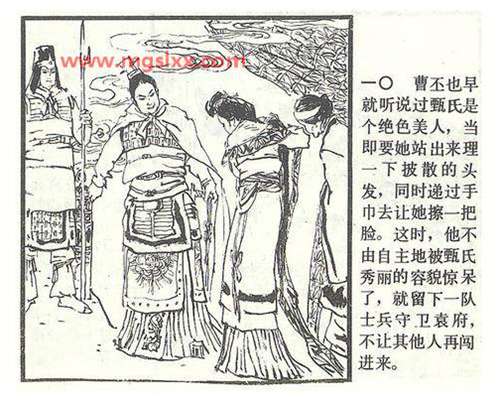 www.mgslxx.com
一〇 曹丕也早
就听说过甄氏是
个绝色美人，当
即要她站出来理
一下披散的头
发，同时递过手
巾去让她擦一把
脸。这时，他不
由自主地被甄氏
秀丽的容貌惊呆
了，就留下一队
士兵守卫袁府，
不让其他人再闯
进来。